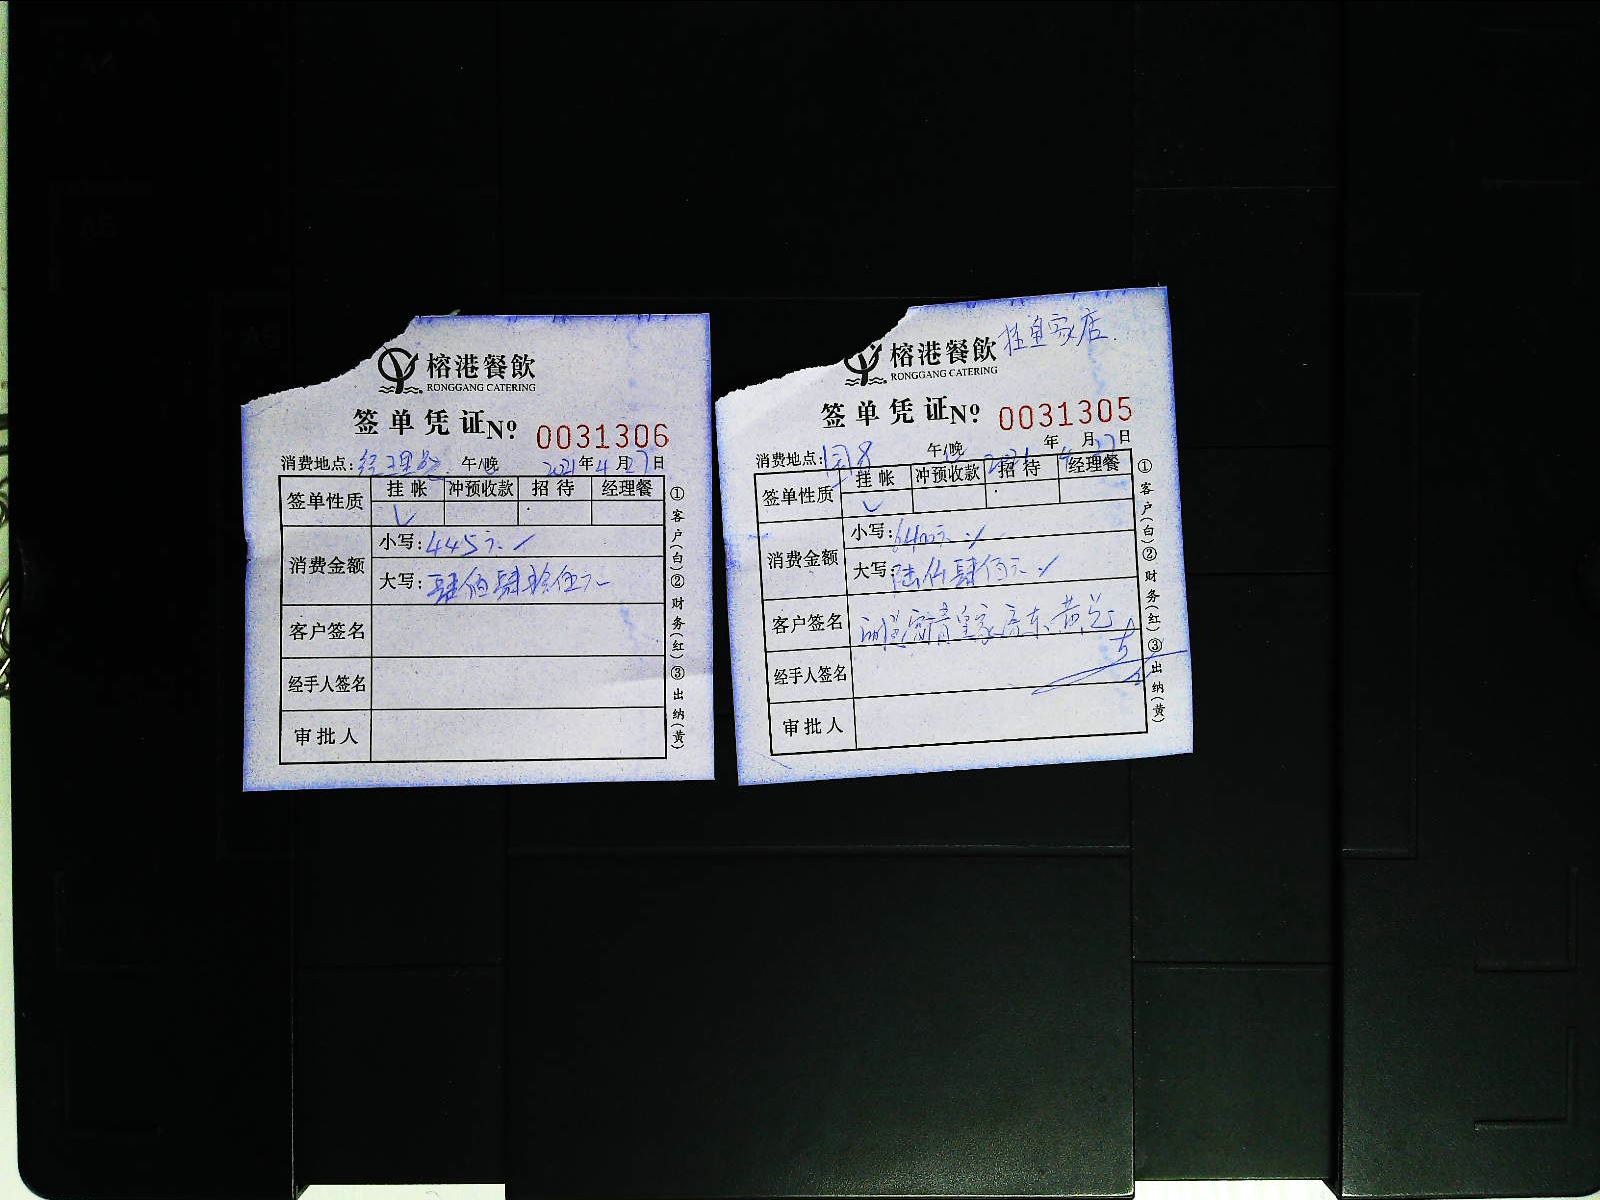 榕港餐飲
RONGGANG CATERING
签单凭证 Nº 0031306
消费地点: 经理餐 午/晚 2021年4月27日
签单性质 挂帐 冲预收款 招待 经理餐
✓
消费金额
小写: 445元
大写: 肆佰肆拾伍元
客户签名
经手人签名
审批人
①客户(白)②财务(红)③出纳(黄)
挂皇家店
榕港餐飲
RONGGANG CATERING
签单凭证 Nº 0031305
消费地点: 午/晚 2021年4月27日
签单性质 挂帐 冲预收款 招待 经理餐
✓
消费金额
小写: 6400元
大写: 陆仟肆佰元
客户签名 宴请皇家房东黄总
经手人签名
审批人
①客户(白)②财务(红)③出纳(黄)